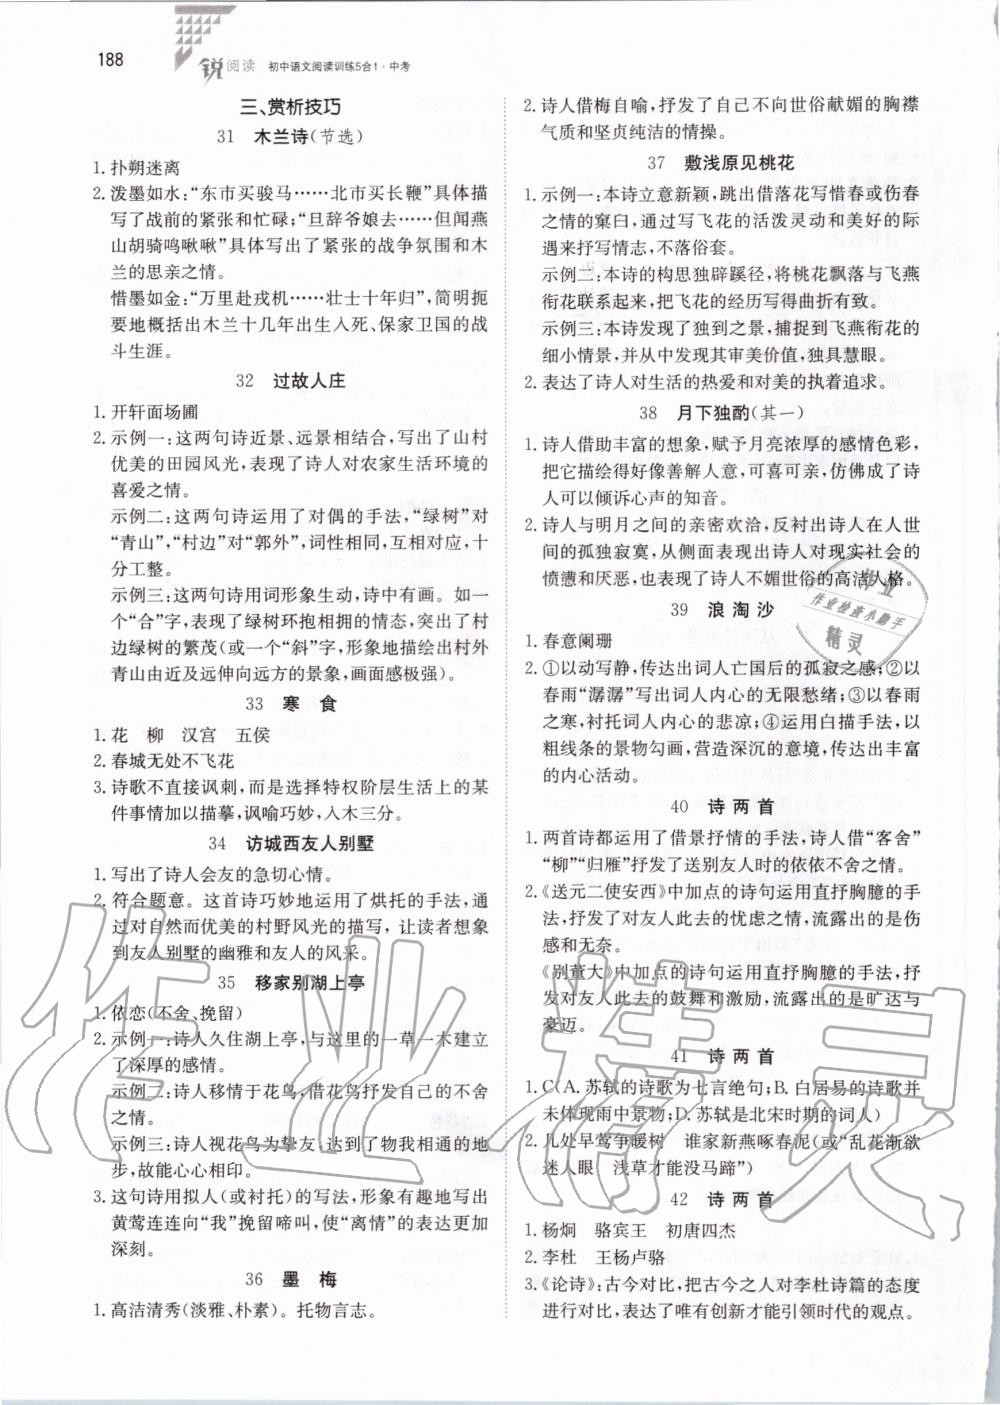 188
锐阅读 初中语文阅读训练5合1·中考
三、赏析技巧
31 木兰诗(节选)
1.扑朔迷离
2.泼墨如水:“东市买骏马……北市买长鞭”具体描
写了战前的紧张和忙碌;“旦辞爷娘去……但闻燕
山胡骑鸣啾啾”具体写出了紧张的战争氛围和木
兰的思亲之情。
惜墨如金:“万里赴戎机……壮士十年归”,简明扼
要地概括出木兰十几年出生入死、保家卫国的战
斗生涯。
32 过故人庄
1.开轩面场圃
2.示例一:这两句诗近景、远景相结合,写出了山村
优美的田园风光,表现了诗人对农家生活环境的
喜爱之情。
示例二:这两句诗运用了对偶的手法,“绿树”对
“青山”,“村边”对“郭外”,词性相同,互相对应,十
分工整。
示例三:这两句诗用词形象生动,诗中有画。如一
个“合”字,表现了绿树环抱相拥的情态,突出了村
边绿树的繁茂(或一个“斜”字,形象地描绘出村外
青山由近及远伸向远方的景象,画面感极强)。
33 寒食
1.花 柳 汉宫 五侯
2.春城无处不飞花
3.诗歌不直接讽刺,而是选择特权阶层生活上的某
件事情加以描摹,讽喻巧妙,入木三分。
34 访城西友人别墅
1.写出了诗人会友的急切心情。
2.符合题意。这首诗巧妙地运用了烘托的手法,通
过对自然而优美的村野风光的描写,让读者想象
到友人别墅的幽雅和友人的风采。
35 移家别湖上亭
1.依恋(不舍、挽留)
2.示例一:诗人久住湖上亭,与这里的一草一木建立
了深厚的感情。
示例二:诗人移情于花鸟,借花鸟抒发自己的不舍
之情。
示例三:诗人视花鸟为挚友,达到了物我相通的地
步,故能心心相印。
3.这句诗用拟人(或衬托)的写法,形象有趣地写出
黄莺连连向“我”挽留啼叫,使“离情”的表达更加
深刻。
36 墨梅
1.高洁清秀(淡雅、朴素)。托物言志。
2.诗人借梅自喻,抒发了自己不向世俗献媚的胸襟
气质和坚贞纯洁的情操。
37 敷浅原见桃花
1.示例一:本诗立意新颖,跳出借落花写惜春或伤春
之情的窠臼,通过写飞花的活泼灵动和美好的际
遇来抒写情志,不落俗套。
示例二:本诗的构思独辟蹊径,将桃花飘落与飞燕
衔花联系起来,把飞花的经历写得曲折有致。
示例三:本诗发现了独到之景,捕捉到飞燕衔花的
细小情景,并从中发现其审美价值,独具慧眼。
2.表达了诗人对生活的热爱和对美的执着追求。
38 月下独酌(其一)
1.诗人借助丰富的想象,赋予月亮浓厚的感情色彩,
把它描绘得好像善解人意,可喜可亲,仿佛成了诗
人可以倾诉心声的知音。
2.诗人与明月之间的亲密欢洽,反衬出诗人在人世
间的孤独寂寞,从侧面表现出诗人对现实社会的
愤懑和厌恶,也表现了诗人不媚世俗的高洁人格。
39 浪淘沙
1.春意阑珊
2.①以动写静,传达出词人亡国后的孤寂之感;②以
春雨“潺潺”写出词人内心的无限愁绪;③以春雨
之寒,衬托词人内心的悲凉;④运用白描手法,以
粗线条的景物勾画,营造深沉的意境,传达出丰富
的内心活动。
40 诗两首
1.两首诗都运用了借景抒情的手法,诗人借“客舍”
“柳”“归雁”抒发了送别友人时的依依不舍之情。
2.《送元二使安西》中加点的诗句运用直抒胸臆的手
法,抒发了对友人此去的忧虑之情,流露出的是伤
感和无奈。
《别董大》中加点的诗句运用直抒胸臆的手法,抒
发对友人此去的鼓舞和激励,流露出的是旷达与
豪迈。
41 诗两首
1.C(A.苏轼的诗歌为七言绝句;B.白居易的诗歌并
未体现雨中景物;D.苏轼是北宋时期的词人)
2.几处早莺争暖树 谁家新燕啄春泥(或“乱花渐欲
迷人眼 浅草才能没马蹄”)
42 诗两首
1.杨炯 骆宾王 初唐四杰
2.李杜 王杨卢骆
3.《论诗》:古今对比,把古今之人对李杜诗篇的态度
进行对比,表达了唯有创新才能引领时代的观点。
作业精灵
作业检查小助手
精灵